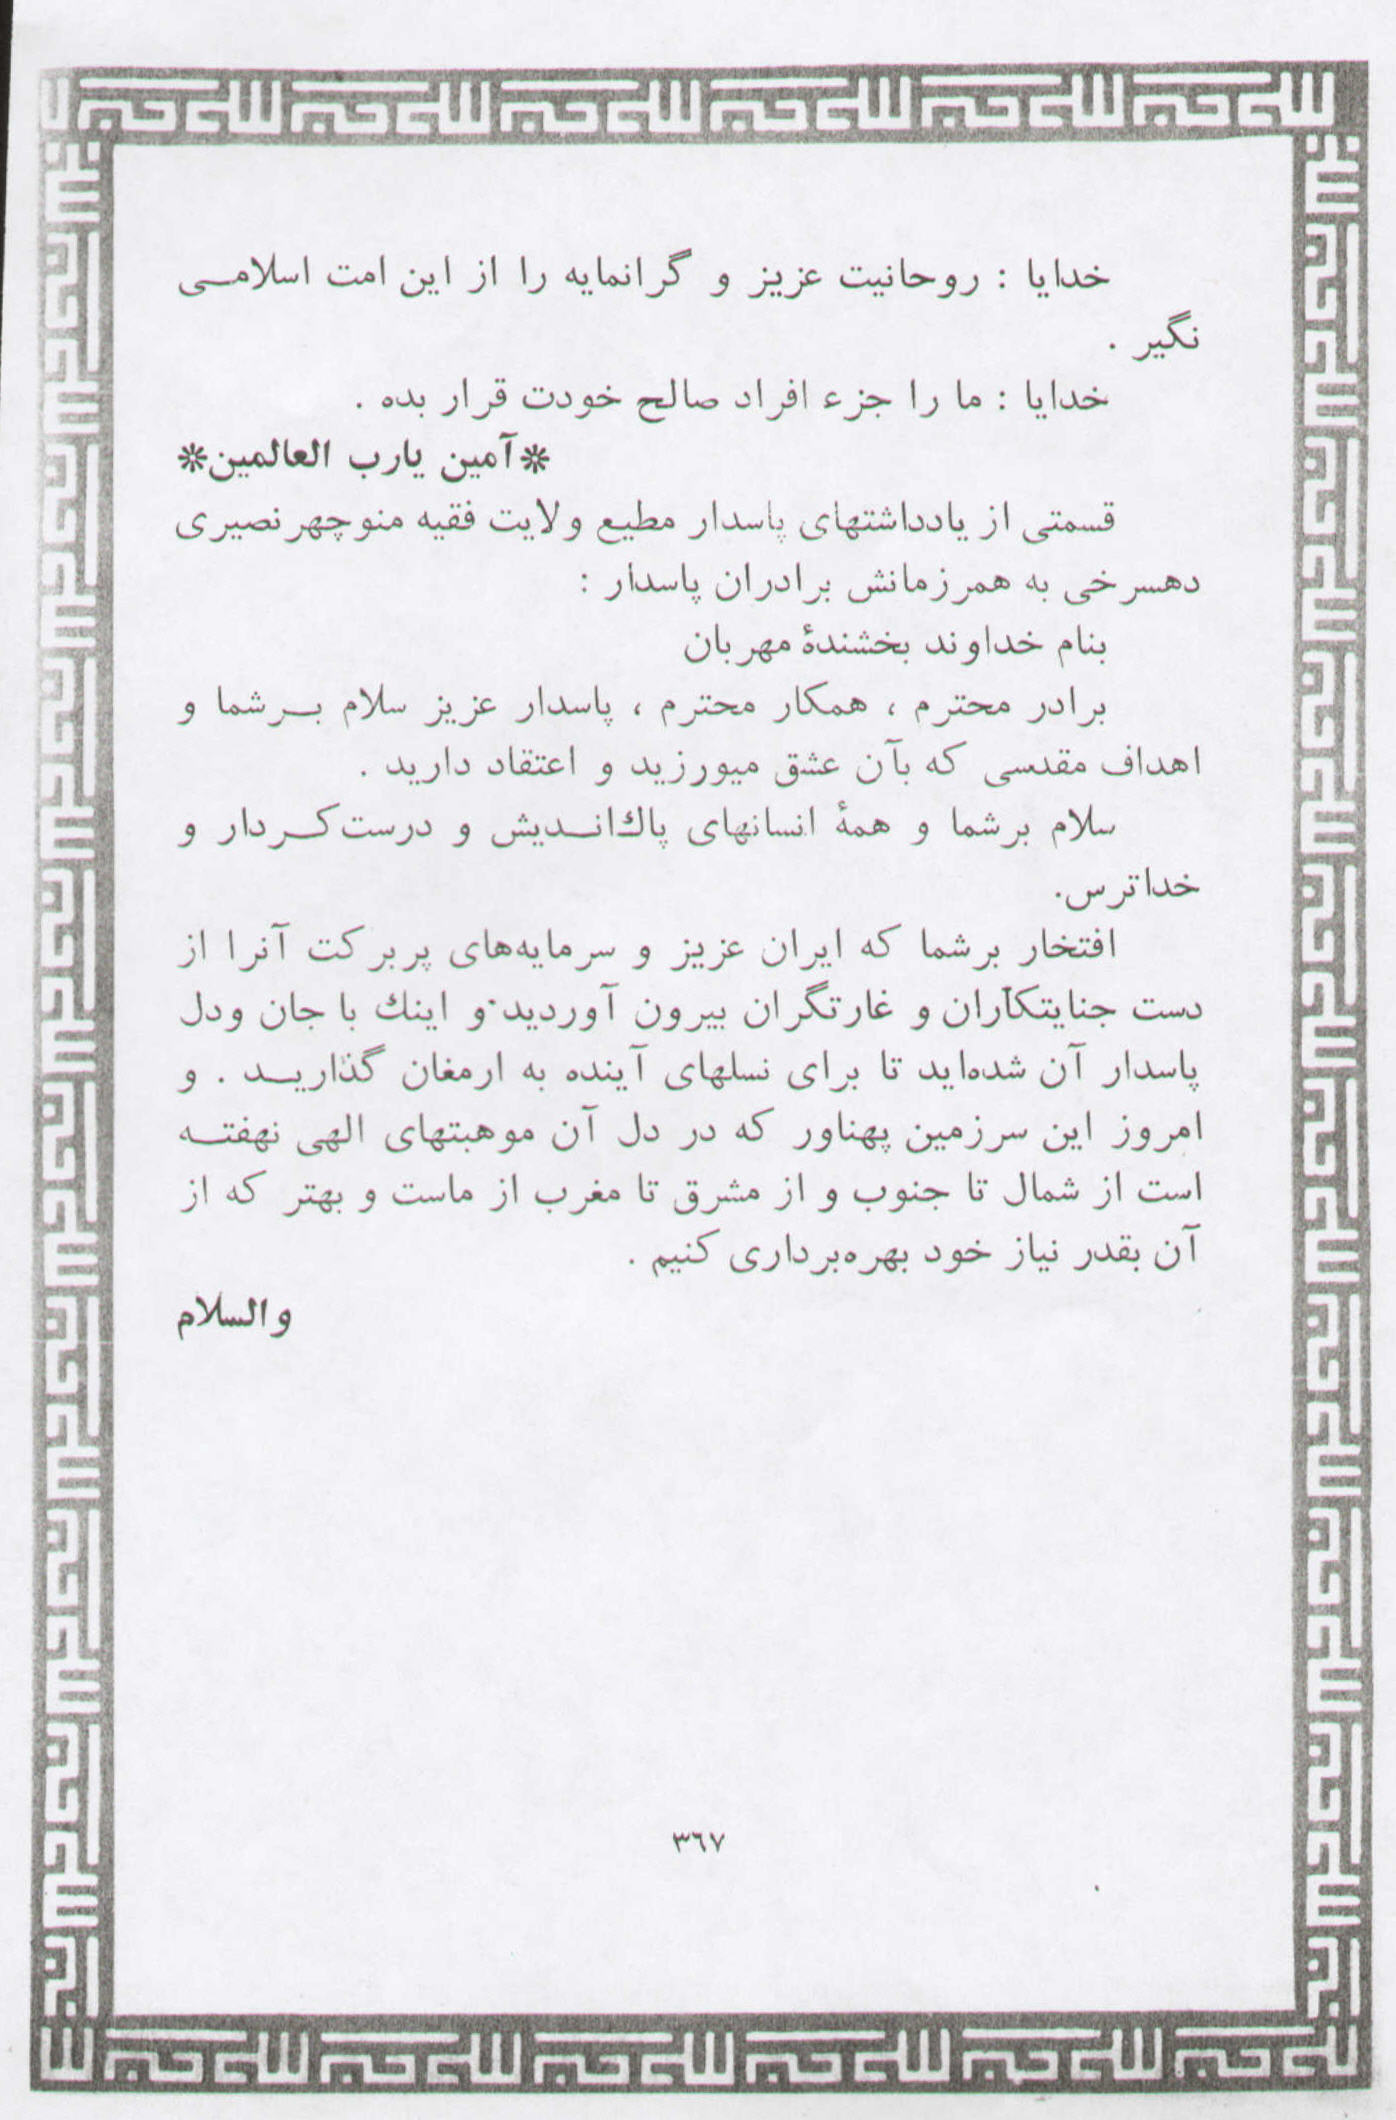 خدایا : روحانیت عزیز و گرانمایه را از این امت اسلامی
نگیر .
خدایا : ما را جزء افراد صالح خودت قرار بده .
*آمین یارب العالمین*
قسمتی از یادداشتهای پاسدار مطیع ولایت فقیه منوچهر نصیری
دهسرخی به همرزمانش برادران پاسدار :
بنام خداوند بخشندهٔ مهربان
برادر محترم ، همکار محترم ، پاسدار عزیز سلام برشما و
اهداف مقدسی که بآن عشق میورزید و اعتقاد دارید .
سلام برشما و همهٔ انسانهای پاك‌اندیش و درست‌کردار و
خداترس.
افتخار برشما که ایران عزیز و سرمایه‌های پربرکت آنرا از
دست جنایتکاران و غارتگران بیرون آوردید و اینك با جان ودل
پاسدار آن شده‌اید تا برای نسلهای آینده به ارمغان گذارید . و
امروز این سرزمین پهناور که در دل آن موهبتهای الهی نهفته
است از شمال تا جنوب و از مشرق تا مغرب از ماست و بهتر که از
آن بقدر نیاز خود بهره‌برداری کنیم .
والسلام
٣٦٧